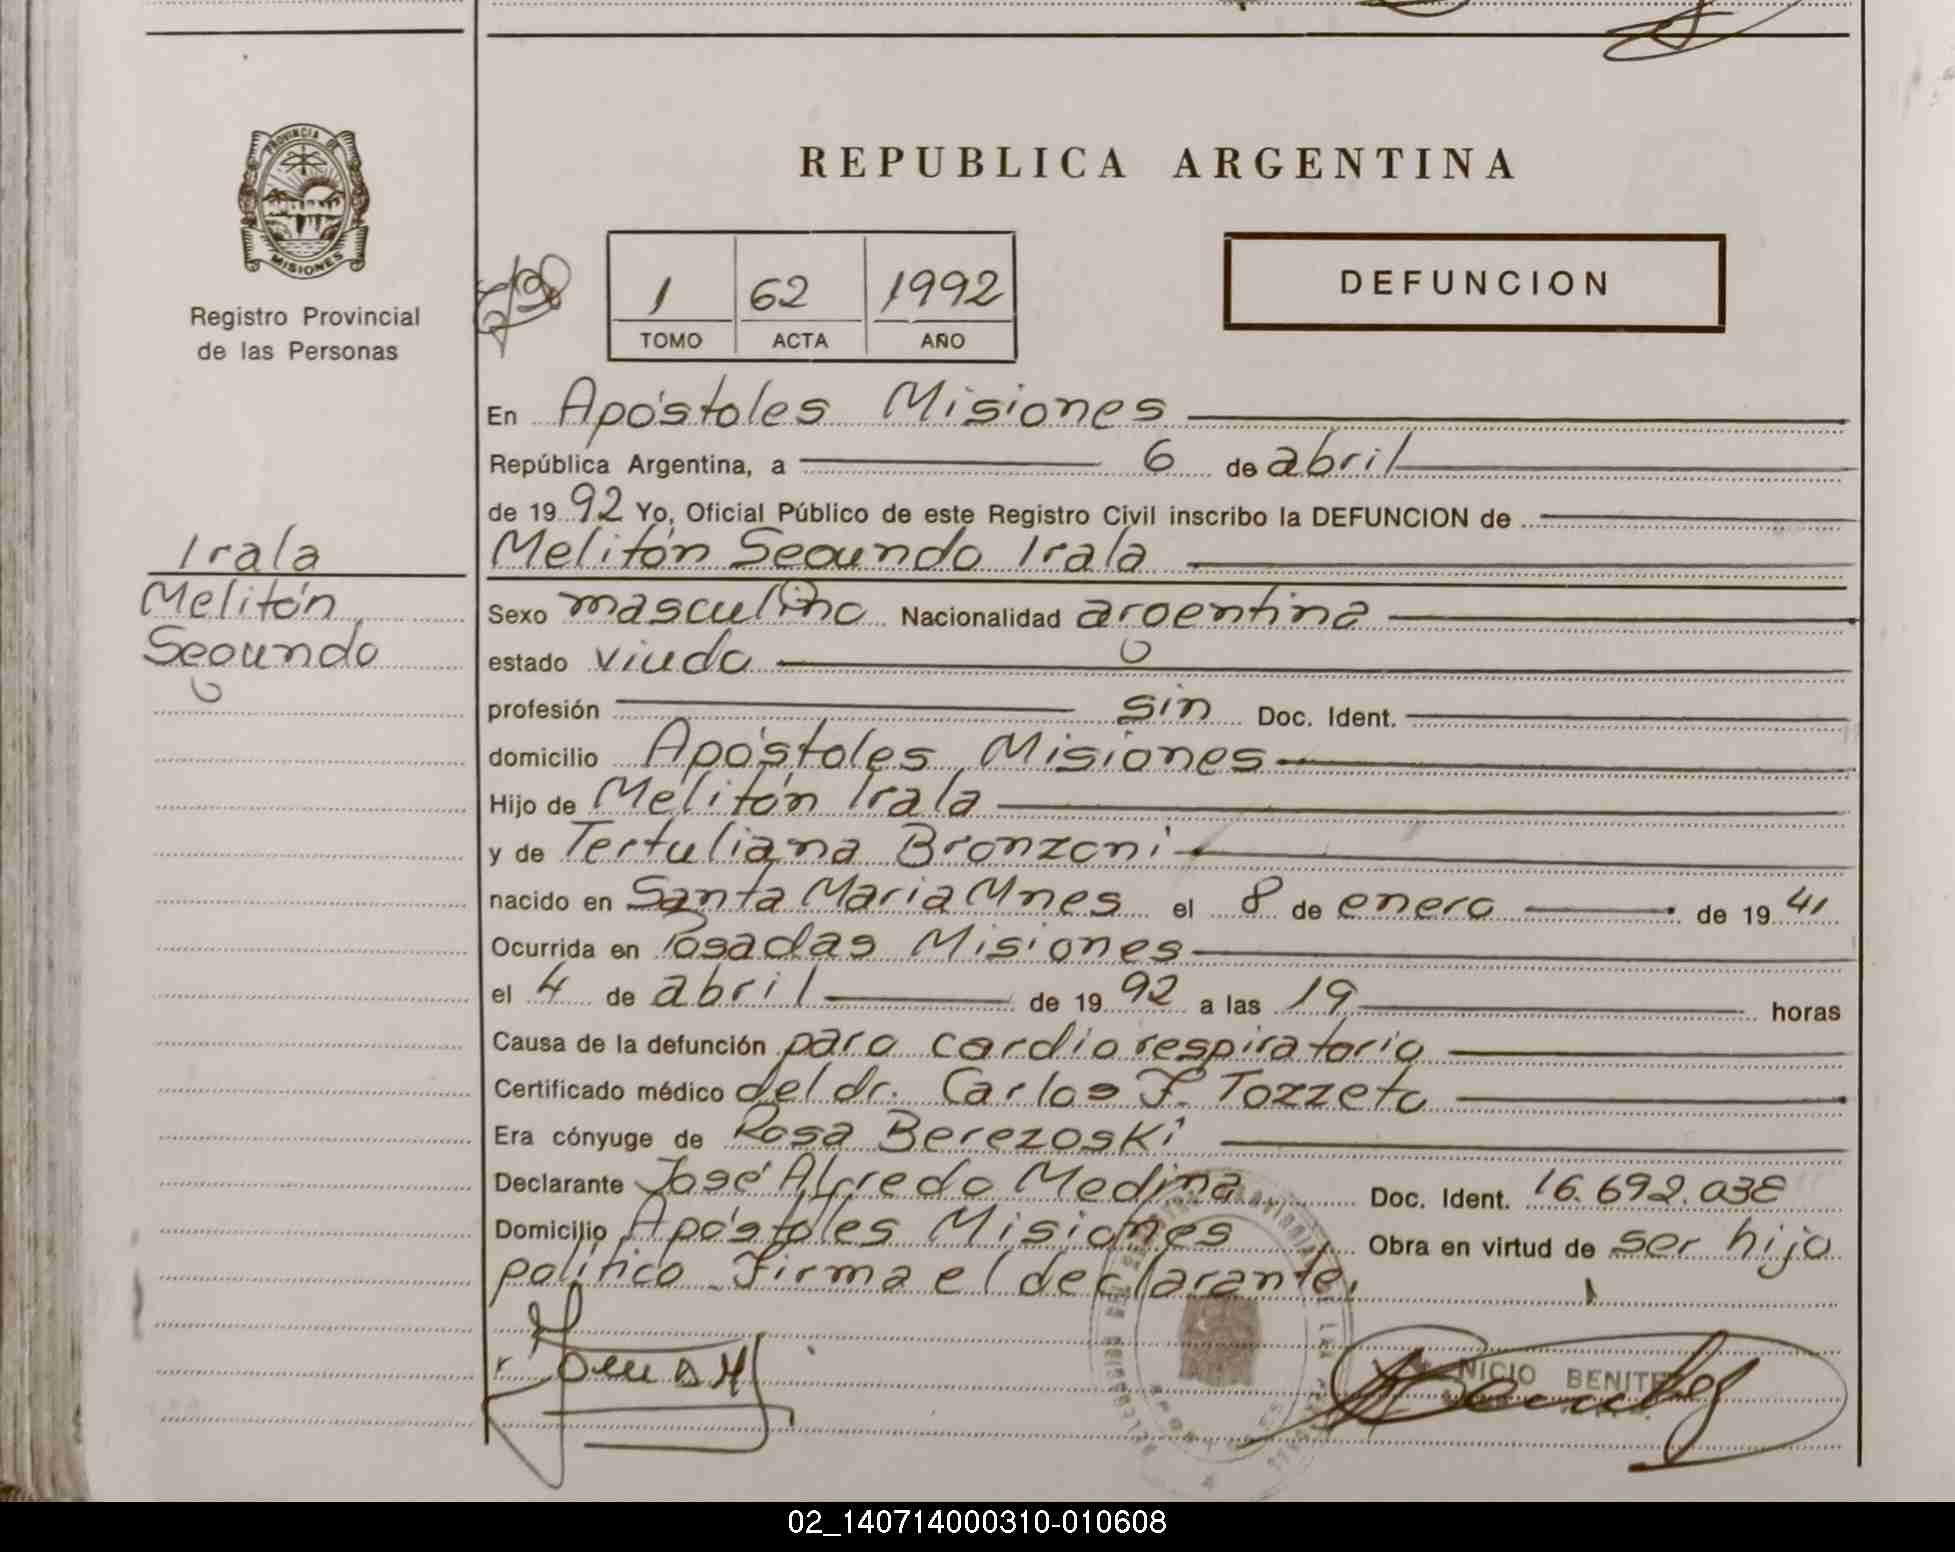 PROVINCIA DE
MISIONES
Registro Provincial
de las Personas
REPUBLICA ARGENTINA
1 62 1992
TOMO ACTA AÑO
DEFUNCION
En Apóstoles Misiones
República Argentina, a 6 de abril
de 19 92 Yo, Oficial Público de este Registro Civil inscribo la DEFUNCION de
Irala
Melitón Segundo Irala
Melitón
Sexo masculino Nacionalidad argentina
Segundo
estado viudo
profesión sin Doc. Ident.
domicilio Apóstoles Misiones
Hijo de Melitón Irala
y de Tertuliana Bronzoni
nacido en Santa Maria Mnes el 8 de enero de 19 41
Ocurrida en Posadas Misiones
el 4 de abril de 19 92 a las 19 horas
Causa de la defunción paro cardio respiratorio
Certificado médico del dr. Carlos F. Tozzeto
Era cónyuge de Rosa Berezoski
Declarante José Alfredo Medina Doc. Ident. 16.692.038
Domicilio Apóstoles Misiones Obra en virtud de ser hijo
político. Firma el declarante.
NICIO BENITE
02_140714000310-010608